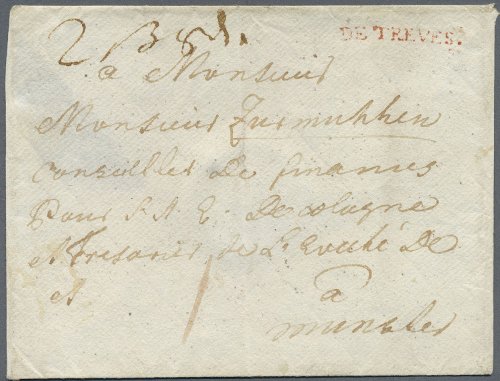 DE TREVES.
a Monsieur
Monsieur Zurmuhlen
Conseiller De finances
Pour S. A. E. De Cologne
et Tresorier de L'Eveché De
et
a
munster